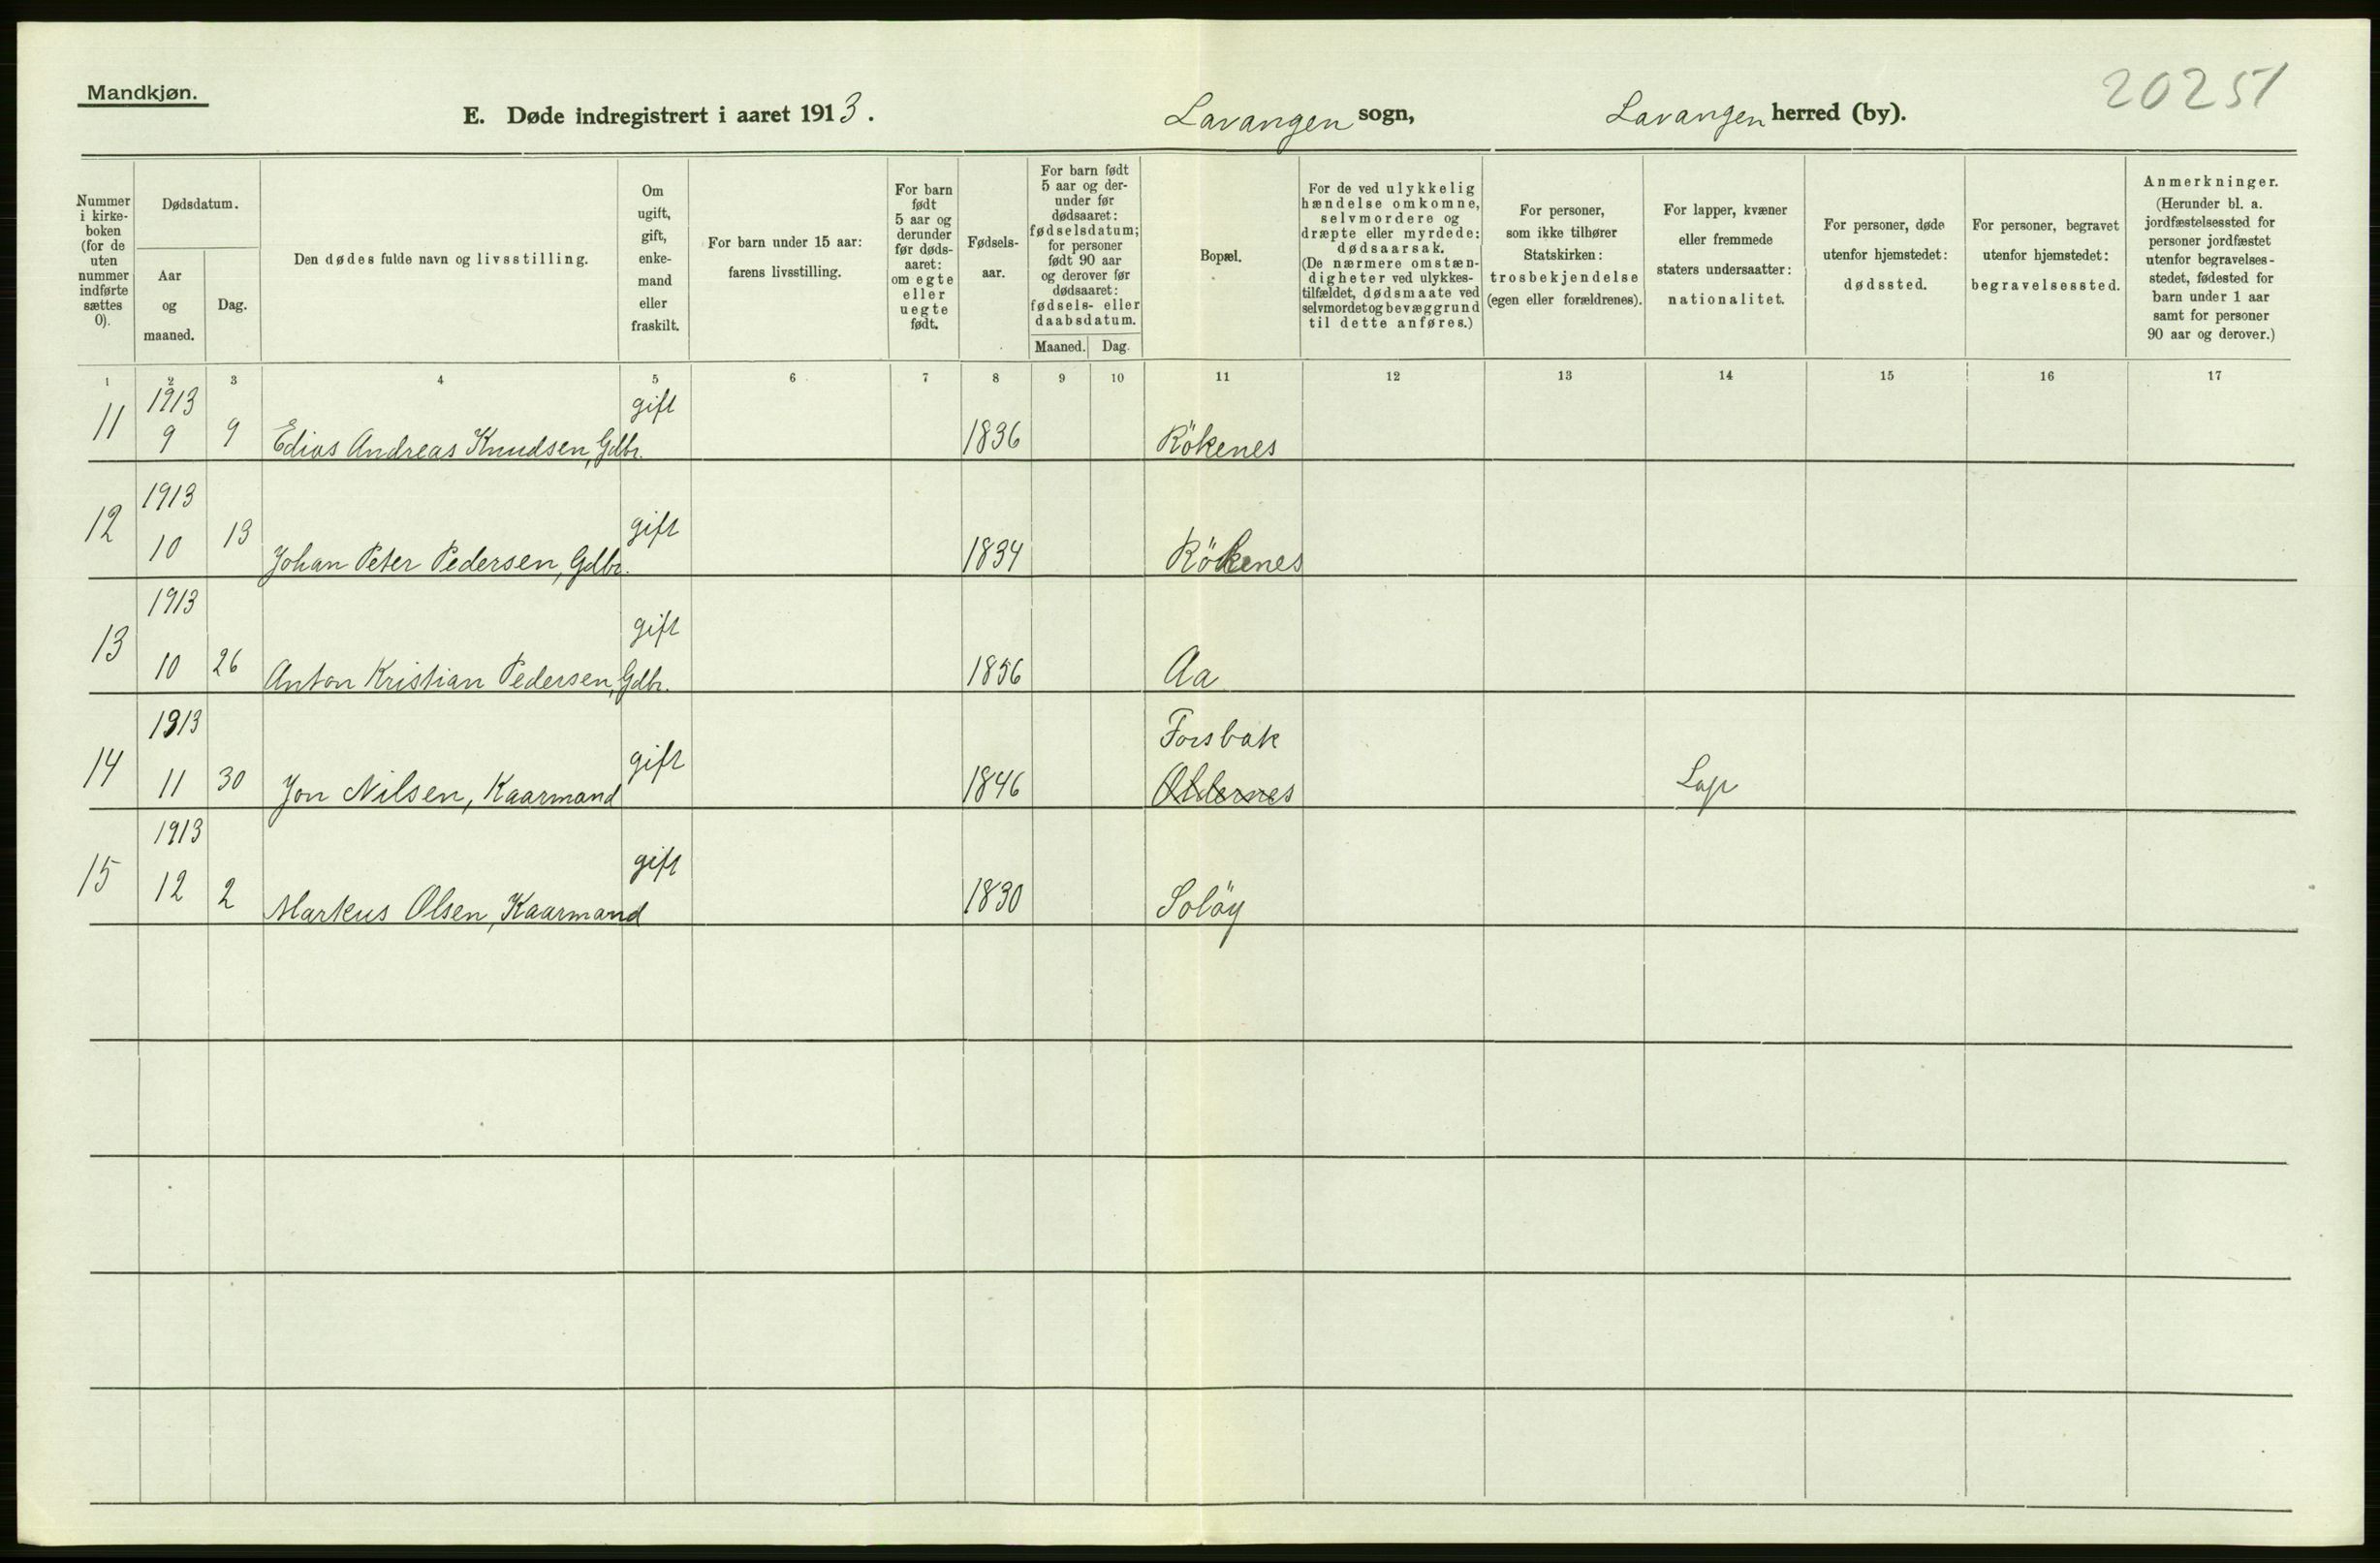 Mandkjøn.
20251
E. Døde indregistrert i aaret 1913.
Lavangen sogn,
Lavangen herred (by).
Nummer
i kirke-
boken
(for de
uten
nummer
indførte
sættes
0).
Dødsdatum.
Aar
og
maaned.
Dag.
Den dødes fulde navn og livsstilling.
Om
ugift,
gift,
enke-
mand
eller
fraskilt.
For barn under 15 aar:
farens livsstilling.
For barn
født
5 aar og
derunder
før døds-
aaret:
om egte
eller
uegte
født.
Fødsels-
aar.
For barn født
5 aar og der-
under før
dødsaaret:
fødselsdatum;
for personer
født 90 aar
og derover før
dødsaaret:
fødsels- eller
daabsdatum.
Maaned. Dag.
Bopæl.
For de ved ulykkelig
hændelse omkomne,
selvmordere og
dræpte eller myrdede:
dødsaarsak.
(De nærmere omstæn-
digheter ved ulykkes-
tilfældet, dødsmaate ved
selvmordet og bevæggrund
til dette anføres.)
For personer,
som ikke tilhører
Statskirken:
trosbekjendelse
(egen eller forældrenes).
For lapper, kvæner
eller fremmede
staters undersaatter:
nationalitet.
For personer, døde
utenfor hjemstedet:
dødssted.
For personer, begravet
utenfor hjemstedet:
begravelsessted.
Anmerkninger.
(Herunder bl. a.
jordfæstelsessted for
personer jordfæstet
utenfor begravelses-
stedet, fødested for
barn under 1 aar
samt for personer
90 aar og derover.)
1 2 3 4 5 6 7 8 9 10 11 12 13 14 15 16 17
1913 gift
11 9 9 Edias Andreas Knudsen, Gdbr. 1836 Rökenes
1913 gift
12 10 13 Johan Peter Pedersen, Gdbr. 1834 Rökenes
1913 gift
13 10 26 Anton Kristian Pedersen, Gdbr. 1856 Aa
1913 gift Forsbak
14 11 30 Jon Nilsen, Kaarmand 1846 Oldernes Lap
1913 gift
15 12 2 Markus Olsen, Kaarmand 1830 Solöy